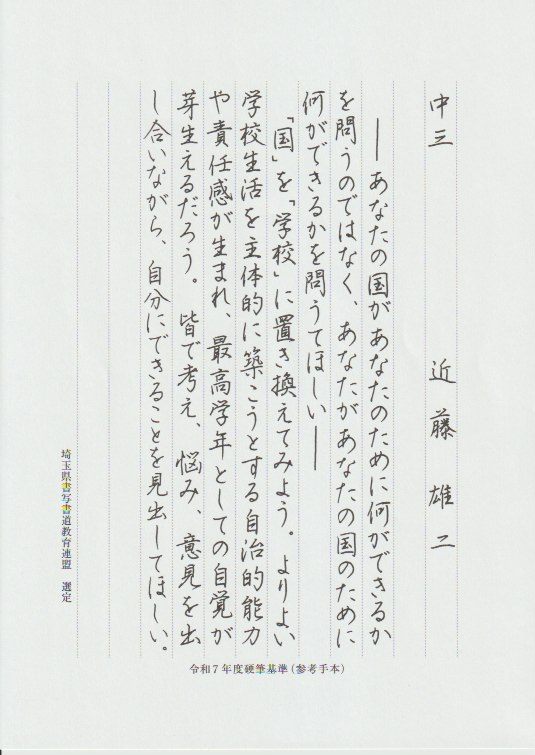 中三　近藤雄二
――あなたの国があなたのために何ができるか
を問うのではなく、あなたがあなたの国のために
何ができるかを問うてほしい――
「国」を「学校」に置き換えてみよう。よりよい
学校生活を主体的に築こうとする自治的能力
や責任感が生まれ、最高学年としての自覚が
芽生えるだろう。皆で考え、悩み、意見を出
し合いながら、自分にできることを見出してほしい。
埼玉県書写書道教育連盟　選定
令和7年度硬筆基準(参考手本)